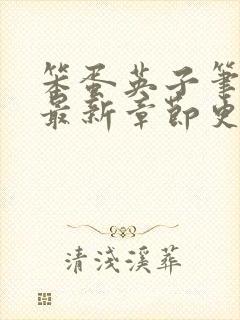 笨蛋英子筆
最新章節史
清淺溪葬